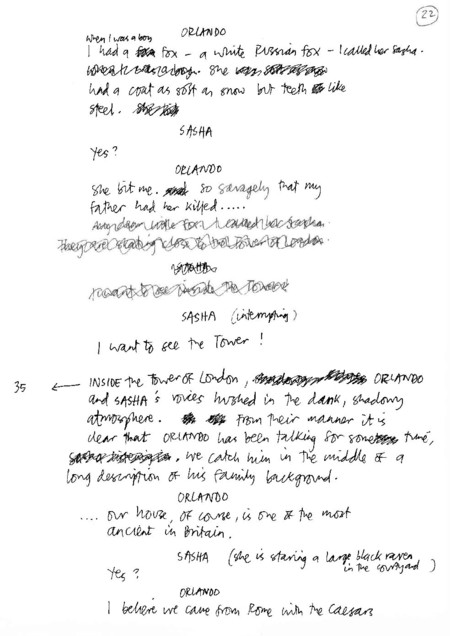 22
ORLANDO
When I was a boy
I had a fox – a white Russian fox – I called her Sasha.
She
had a coat as soft as snow but teeth like
steel.
SASHA
Yes?
ORLANDO
She bit me. so savagely that my
father had her killed.....
SASHA (interrupting)
I want to see the Tower!
35 ← INSIDE the Tower of London, ORLANDO
and SASHA's voices hushed in the dank, shadowy
atmosphere. From their manner it is
clear that ORLANDO has been talking for some time,
. we catch him in the middle of a
long description of his family background.
ORLANDO
.... our house, of course, is one of the most
ancient in Britain.
SASHA (she is staring a large black raven
in the courtyard)
Yes?
ORLANDO
I believe we came from Rome with the Caesars